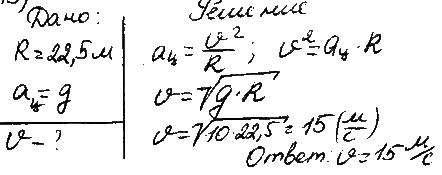 Дано:
R = 22,5 м
aц = g
v - ?
Решение
aц = v²/R ; v² = aц · R
v = √g·R
v = √10·22,5 = 15 (м/с)
Ответ: v = 15 м/с